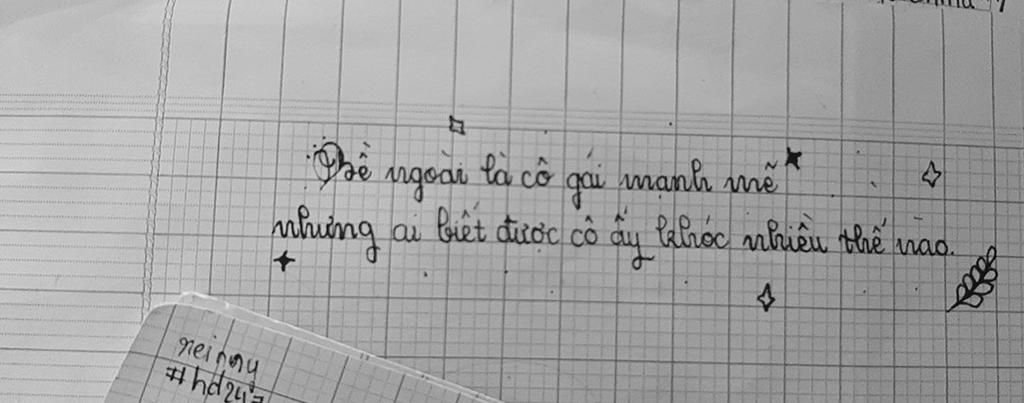 Bề ngoài là cô gái mạnh mẽ
nhưng ai biết được cô ấy khóc nhiều thế nào.
reinny
#hd247